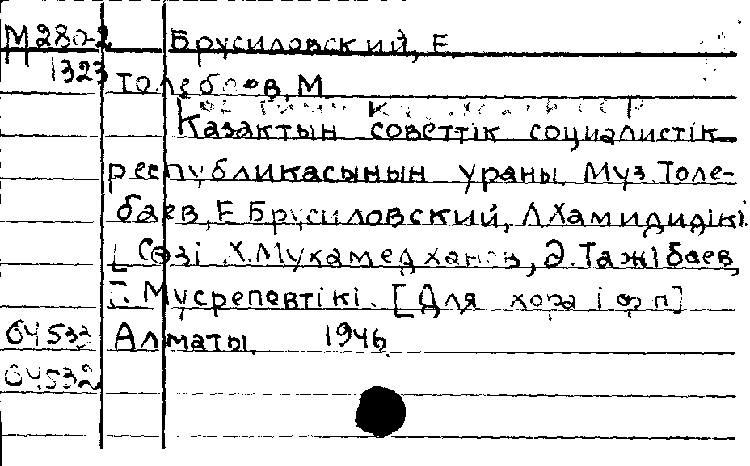 М280-2 Брусиловский, Е.
1323 Толебаев, М
Казактын советтік социалистік
республикасынын ураны. Муз. Толе-
баев, Е Брусиловский, Л. Хамидидікі
[Сөзі Х. Мухамедханов, Ә. Тажібаев,
Г. Мусреповтікі. [Для хора і ф п]
64533 Алматы 1946
64532